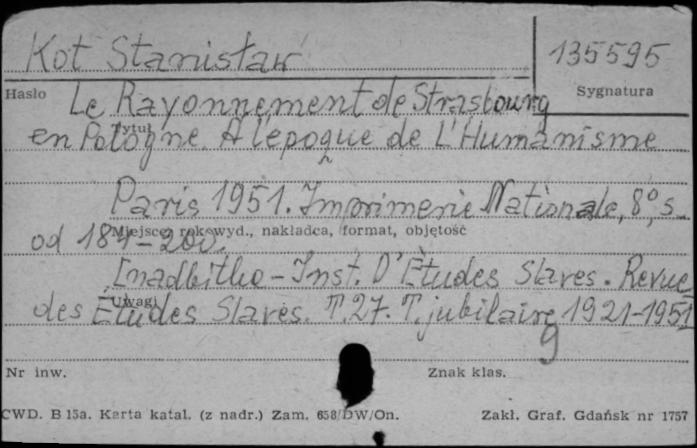 Kot Stanisław
135595
Hasło
Sygnatura
Le Rayonnement de Strasbourg
Tytuł
en Pologne. A l'epoque de L'Humanisme
Paris 1951. Imprimerie Nationale, 8°, s.
Miejsce, rok wyd., nakładca, format, objętość
od 184-200.
[nadbitka - Inst. D'Etudes Slaves. Revue
Uwagi
des Etudes Slaves. T. 27. T. jubilaire 1921-1951
g
Nr inw.
Znak klas.
CWD. B 15a. Karta katal. (z nadr.) Zam. 658/DW/On.
Zakł. Graf. Gdańsk nr 1757